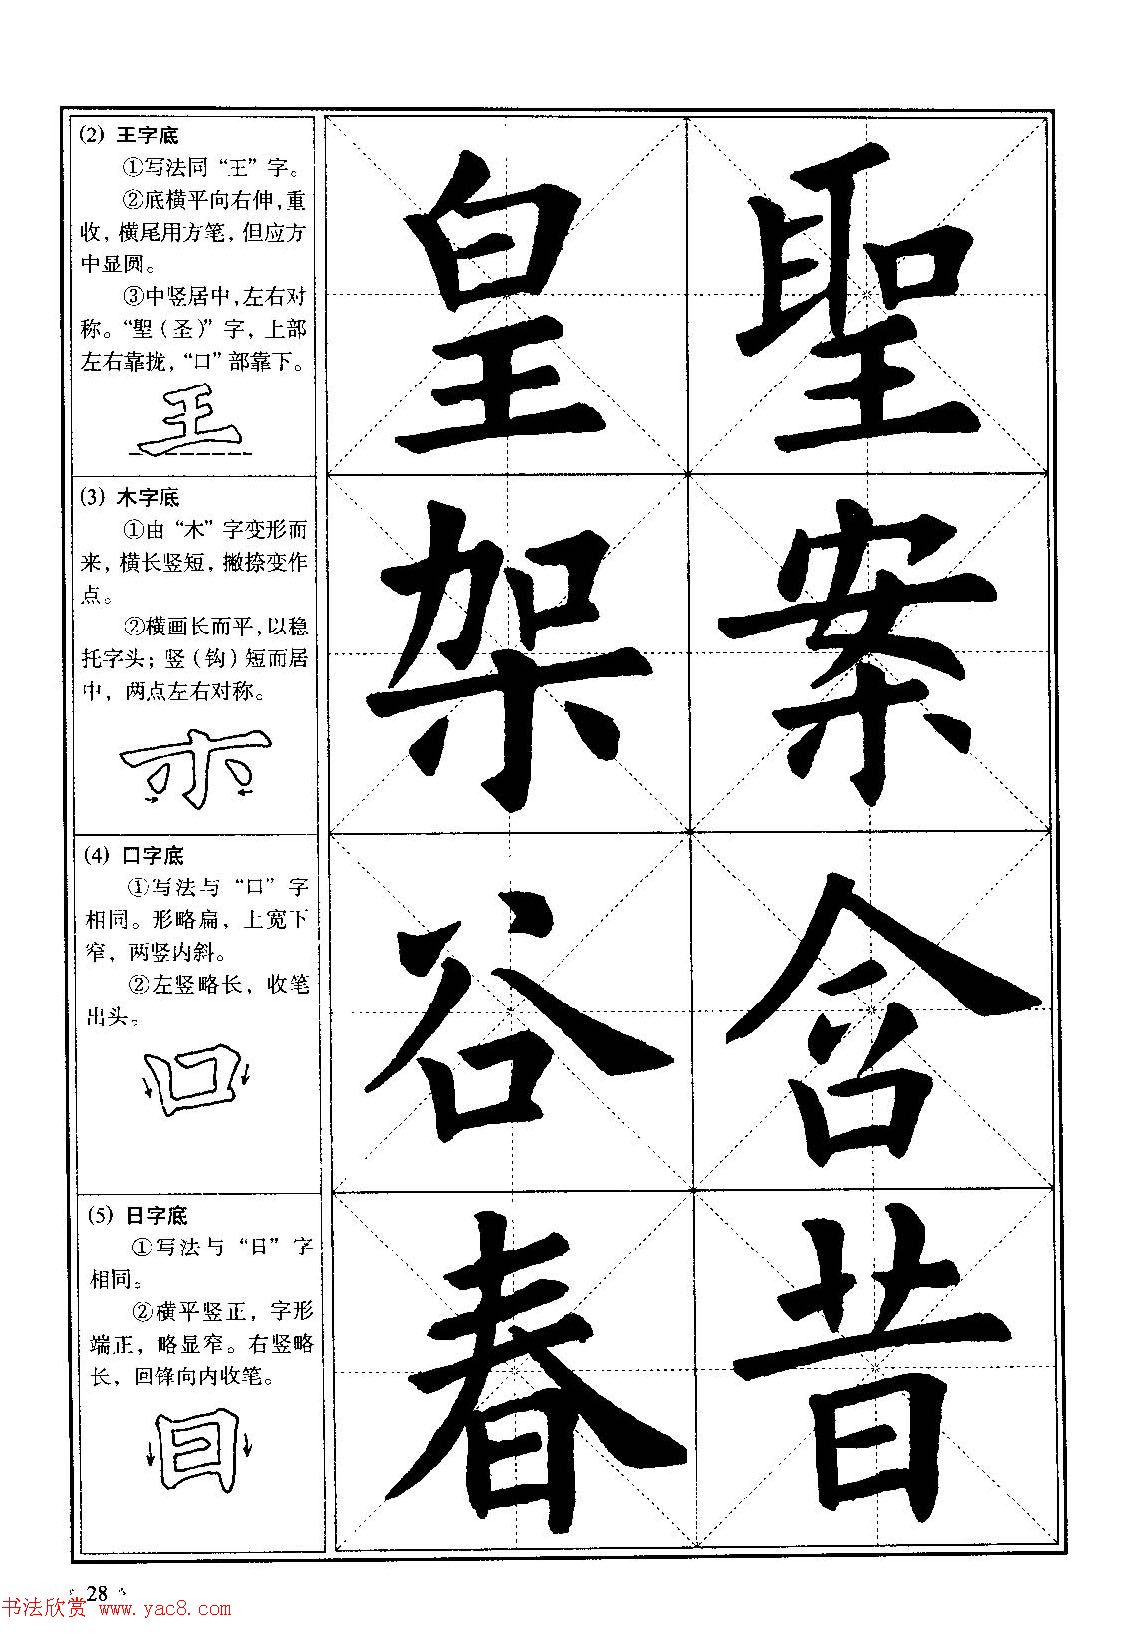 (2) 王字底
①写法同“王”字。
②底横平向右伸，重
收，横尾用方笔，但应方
中显圆。
③中竖居中，左右对
称。“聖（圣）”字，上部
左右靠拢，“口”部靠下。
王
皇 聖
(3) 木字底
①由“木”字变形而
来，横长竖短，撇捺变作
点。
②横画长而平，以稳
托字头；竖（钩）短而居
中，两点左右对称。
木
架 案
(4) 口字底
①写法与“口”字
相同。形略扁，上宽下
窄，两竖内斜。
②左竖略长，收笔
出头。
口
谷 含
(5) 日字底
①写法与“日”字
相同。
②横平竖正，字形
端正，略显窄。右竖略
长，回锋向内收笔。
日
春 昔
28
书法欣赏 www.yac8.com